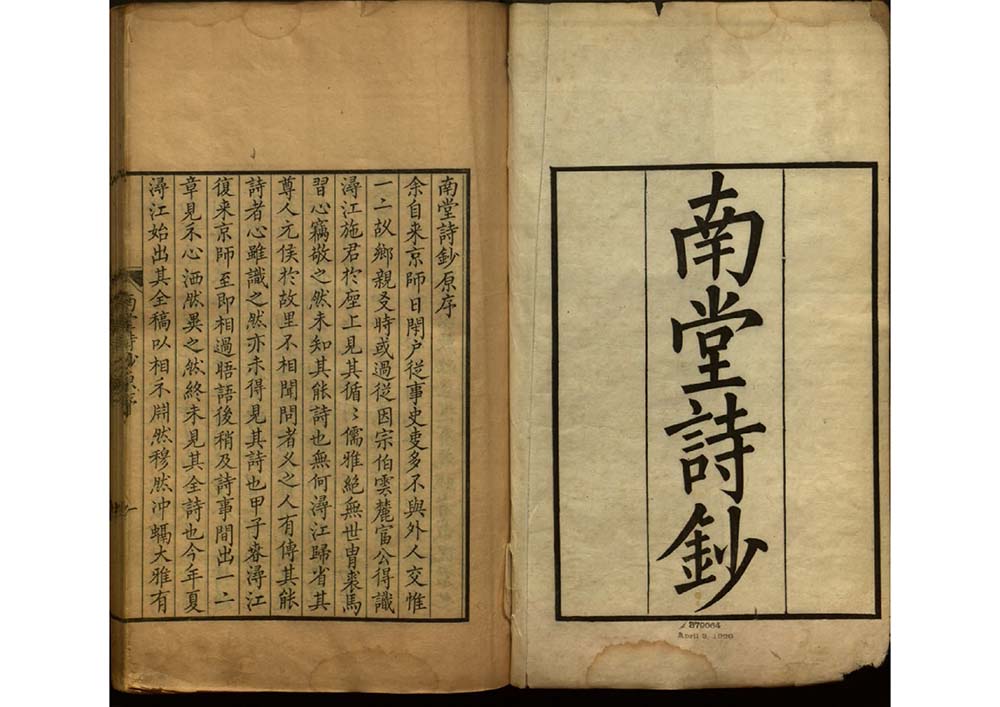 南堂詩鈔
379064
April 2, 1926
南堂詩鈔原序
余自来京師日閉户從事史叓多不與外人交惟
一二故鄉親爻時或過從因宗伯雲麓富公得識
潯江施君於座上見其循〻儒雅絕無世胄裘馬
習心竊敬之然未知其能詩也無何潯江歸省其
尊人元侯於故里不相聞問者乂之人有傳其能
詩者心雖識之然亦未得見其詩也甲子春潯江
復来京師至即相過晤語後稍及詩事間出一二
章見示心洒然異之然終未見其全詩也今年夏
潯江始出其全稿以相示淵然穆然冲融大雅有
南堂詩鈔原序
一